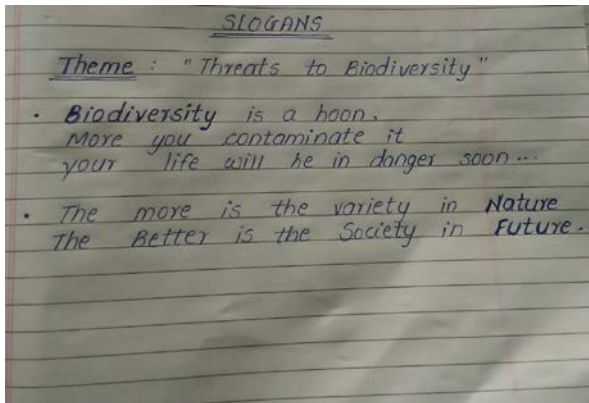 SLOGANS
Theme : "Threats to Biodiversity"
• Biodiversity is a boon.
More you contaminate it
your life will be in danger soon...
• The more is the variety in Nature
The Better is the Society in Future.